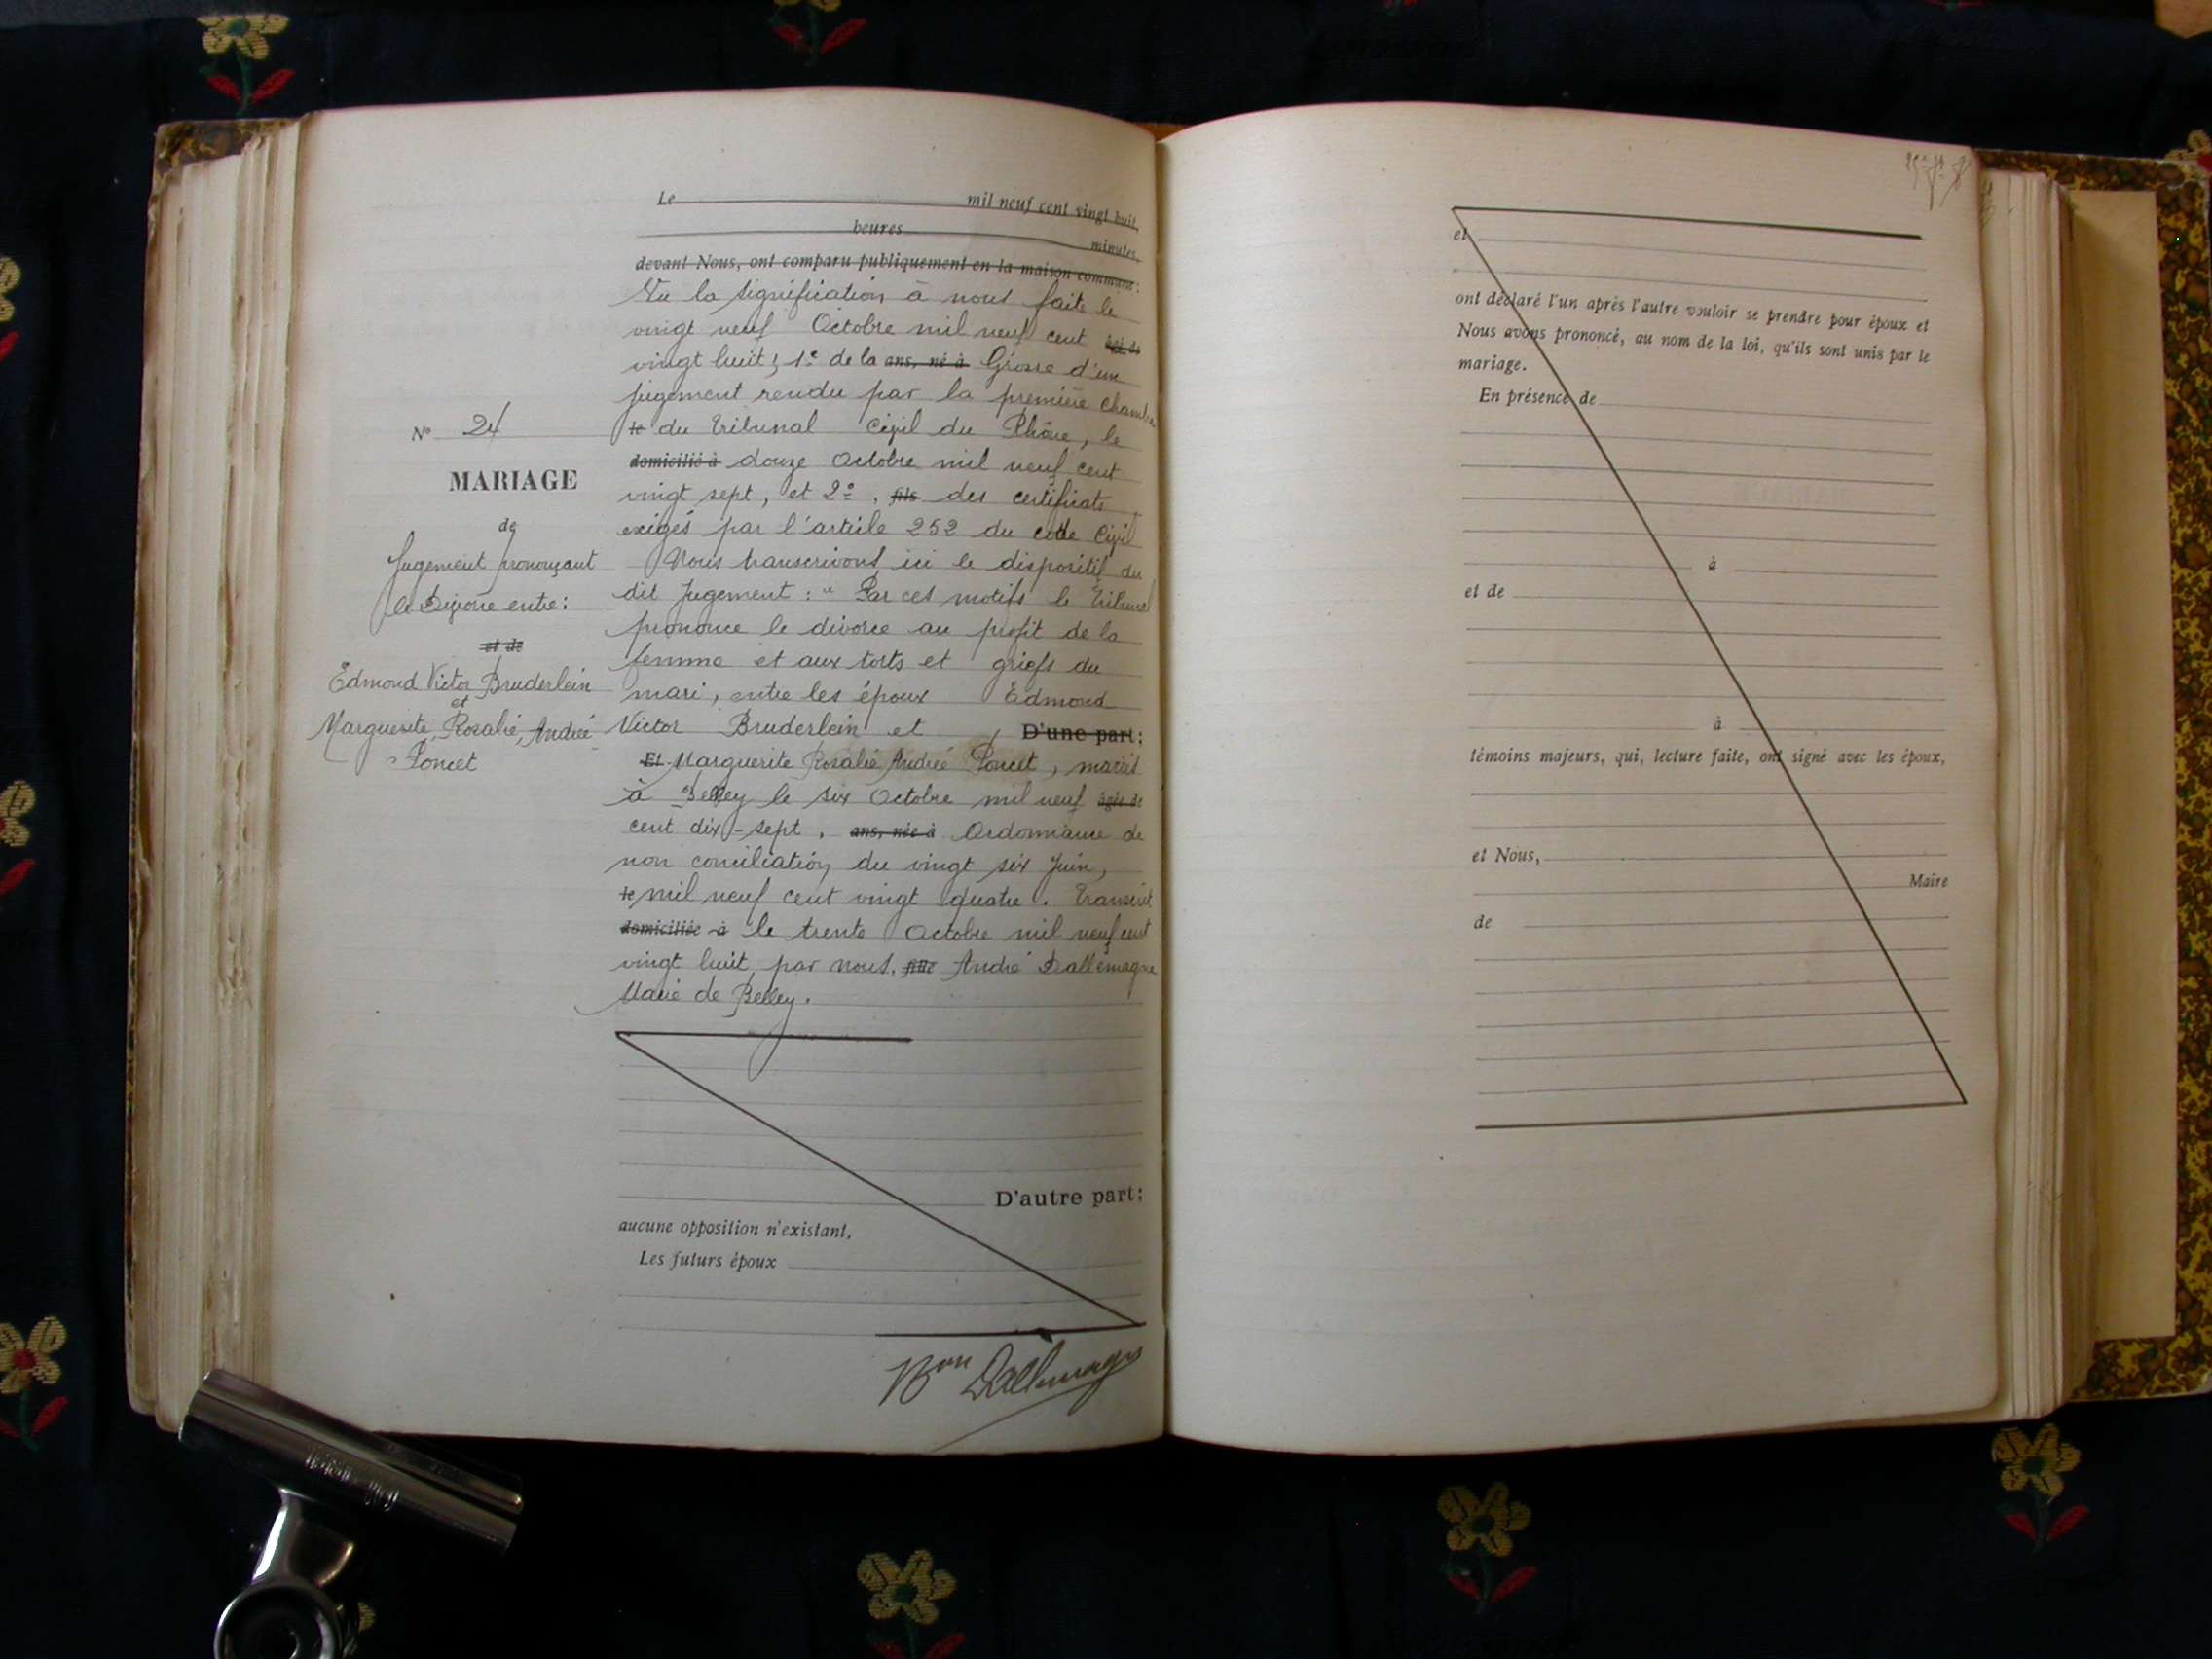 Le mil neuf cent vingt huit,
heures minutes,
devant Nous, ont comparu publiquement en la maison commune:
Vu la signification à nous faite le
vingt neuf Octobre mil neuf cent âgé de
vingt huit; 1º de la ans, né à Grosse d'un
jugement rendu par la première chambre
le du Tribunal Civil du Rhône, le
domicilié à douze Octobre mil neuf cent
vingt sept, et 2º, fils des certificats
exigés par l'article 252 du code Civil
Nous transcrivons ici le dispositif du
dit Jugement : " Par ces motifs le Tribunal
prononce le divorce au profit de la
femme et aux torts et griefs du
mari, entre les époux Edmond
Victor Bruderlein et D'une part;
Et Marguerite Rosalie Andrée Poncet, mariés
à Belley le six Octobre mil neuf âgée de
cent dix-sept, ans, née à Ordonnance de
non conciliation du vingt six Juin,
le mil neuf cent vingt quatre. Transcrit
domiciliée à le trente Octobre mil neuf cent
vingt huit par nous, fille André Dallemagne
Maire de Belley.
D'autre part;
aucune opposition n'existant,
Les futurs époux
Bon Dallemagne
Nº 24
MARIAGE
de
Jugement prononçant
le Divorce entre:
et de
Edmond Victor Bruderlein
et
Marguerite, Rosalie, Andrée
Poncet
et
ont déclaré l'un après l'autre vouloir se prendre pour époux et
Nous avons prononcé, au nom de la loi, qu'ils sont unis par le
mariage.
En présence de
à
et de
à
témoins majeurs, qui, lecture faite, ont signé avec les époux,
et Nous,
Maire
de